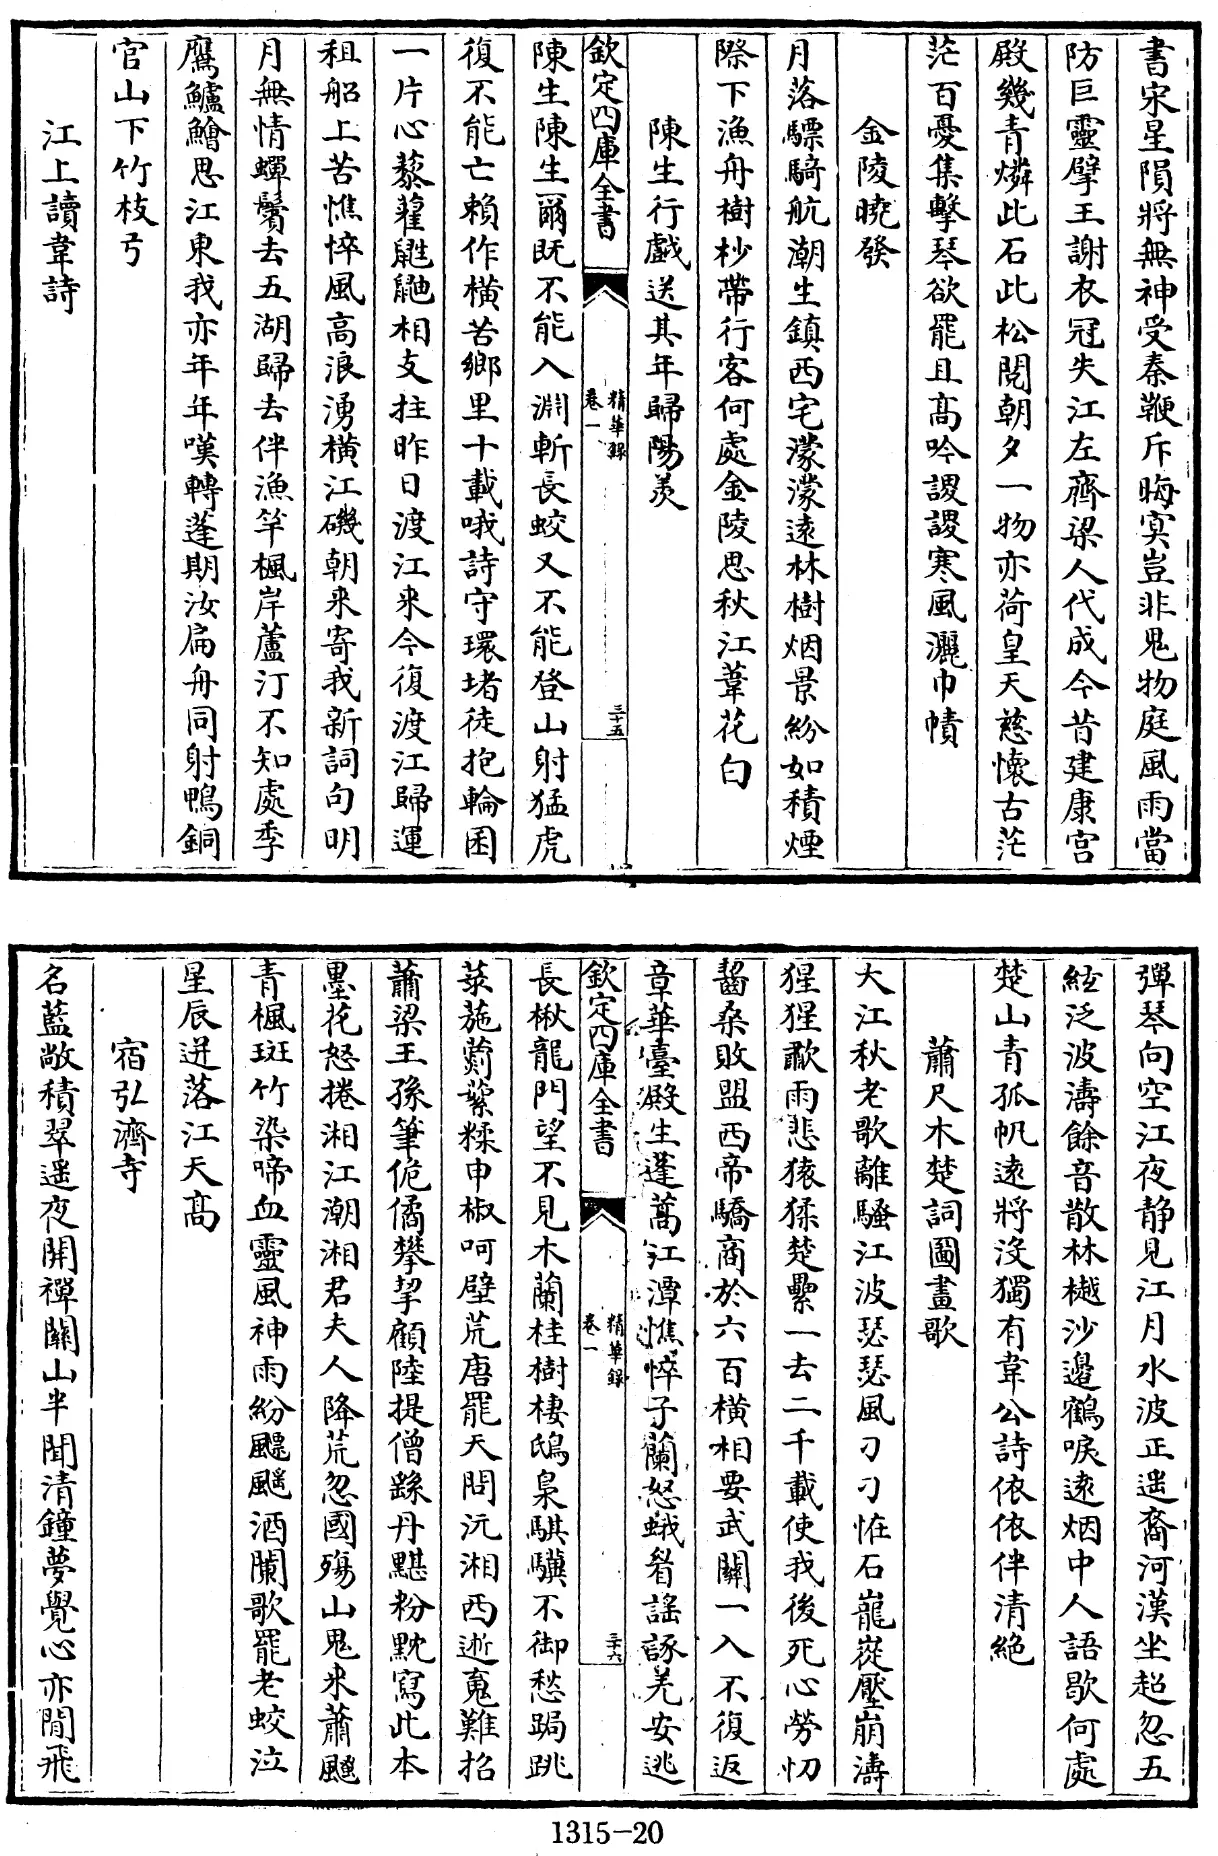 書宋星隕將無神受秦鞭斥晦冥豈非鬼物庭風雨當
防巨靈擘王謝衣冠失江左齊梁人代成今昔建康宮
殿幾青燐此石此松閱朝夕一物亦荷皇天慈懷古茫
茫百憂集擊琴欲罷且髙吟謖謖寒風灑巾幘
金陵曉發
月落驃騎航潮生鎮西宅濛濛逺林樹烟景紛如積煙
際下漁舟樹杪帶行客何處金陵思秋江葦花白
陳生行戲送其年歸陽羡
欽定四庫全書
精華録
卷一
三十五
陳生陳生爾既不能入淵斬長蛟又不能登山射猛虎
復不能亡賴作横苦鄉里十載哦詩守環堵徒抱輪囷
一片心藜藿鼪鼬相支拄昨日渡江来今復渡江歸運
租船上苦憔悴風高浪湧横江磯朝来寄我新詞句明
月無情蟬鬢去五湖歸去伴漁竿楓岸蘆汀不知處季
鷹鱸鱠思江東我亦年年嘆轉蓬期汝扁舟同射鴨銅
官山下竹枝弓
江上讀韋詩
彈琴向空江夜靜見江月水波正遥裔河漢坐超忽五
絃泛波濤餘音散林樾沙邉鶴唳逺烟中人語歇何處
楚山青孤帆逺將沒獨有韋公詩依依伴清絶
蕭尺木楚詞圖畫歌
大江秋老歌離騷江波瑟瑟風刁刁恠石巃嵸壓崩濤
猩猩歗雨悲猿猱楚纍一去二千載使我後死心勞忉
齧桑敗盟西帝驕商於六百横相要武關一入不復返
章華臺殿生蓬蒿江潭憔悴子蘭怒蛾眉謡諑羌安逃
欽定四庫全書
精華録
卷一
三十六
長楸龍門望不見木蘭桂樹棲鴟梟騏驥不御愁跼跳
菉葹薋菉糅申椒呵壁荒唐罷天問沅湘西逝䰟難招
蕭梁王孫筆佹僪攀挐顧陸提僧繇丹黮粉黕寫此本
墨花怒捲湘江潮湘君夫人降荒忽國殤山鬼来蕭颼
青楓斑竹染啼血靈風神雨紛飃颻酒闌歌罷老蛟泣
星辰迸落江天髙
宿弘濟寺
名藍敞積翠遥夜開禪關山半聞清鐘夢覺心亦閒飛
1315-20